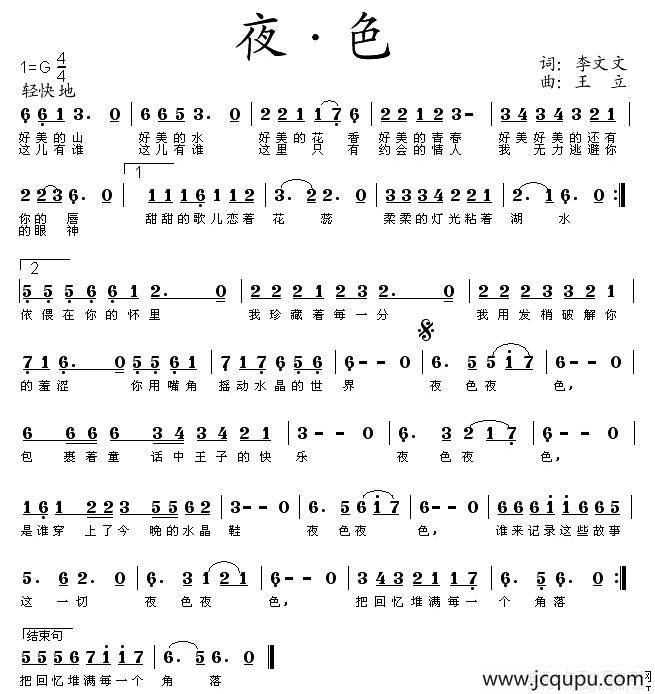 夜·色
1=G 4/4
词：李文文
轻快地
曲：王 立
6 6 1 3. 0 | 6 6 5 3. 0 | 2 2 1 1 7 6 | 2 2 1 2 3- | 3 4 3 4 3 2 1 |
好美的山 好美的水 好美的花 香 好美的青春 好美好美的还有
这儿有谁 这儿有谁 这里 只 有 约会的情人 我 无力逃避你
1
2 2 3 6. 0 | 1 1 1 6 1 1 1 | 3. 2 2. 0 | 2 2 2 1 2 2 2 | 2. 1 6. 0 :||
你的 唇 甜甜的歌儿恋着 花 蕊 柔柔的灯光粘着 湖 水
的眼 神
2
5 5 5 6 6 1 2. 0 | 2 2 2 1 2 3 2. 0 | 2 2 2 2 3 2 1 |
依偎在你的怀里 我珍藏着每一分 我用发梢破解你
7 1 6. 0 | 5 5 6 1 | 2 1 7 1 2 6 5 | 6-- 0 | 6. 5 5 i 7 | 6-- 0 |
的羞涩 你用嘴角 摇动水晶的世 界 夜 色夜 色，
6 6 6 6 3 4 3 4 2 1 | 3-- 0 | 6. 3 2 1 7 | 6-- 0 |
包 裹着童 话中王子的快 乐 夜 色夜 色，
1 6 1 2 2 3 5 5 6 2 | 3-- 0 | 6. 5 6 i 7 | 6-- 0 | 6 6 6 i 6 6 5 |
是谁穿 上了今 晚的水晶 鞋 夜 色夜 色， 谁来记录这些故事
5. 6 2. 0 | 6. 3 1 2 1 | 3-- 0 | 3 4 3 2 1 1 7 | 6. 5 6. 0 :||
这 一切 夜 色夜 色， 把回忆堆满每一 个 角落
结束句
5 5 5 6 7 i i 7 | 6. 5 6. 0 ||
把回忆堆满每一个 角 落
www.jcqupu.com